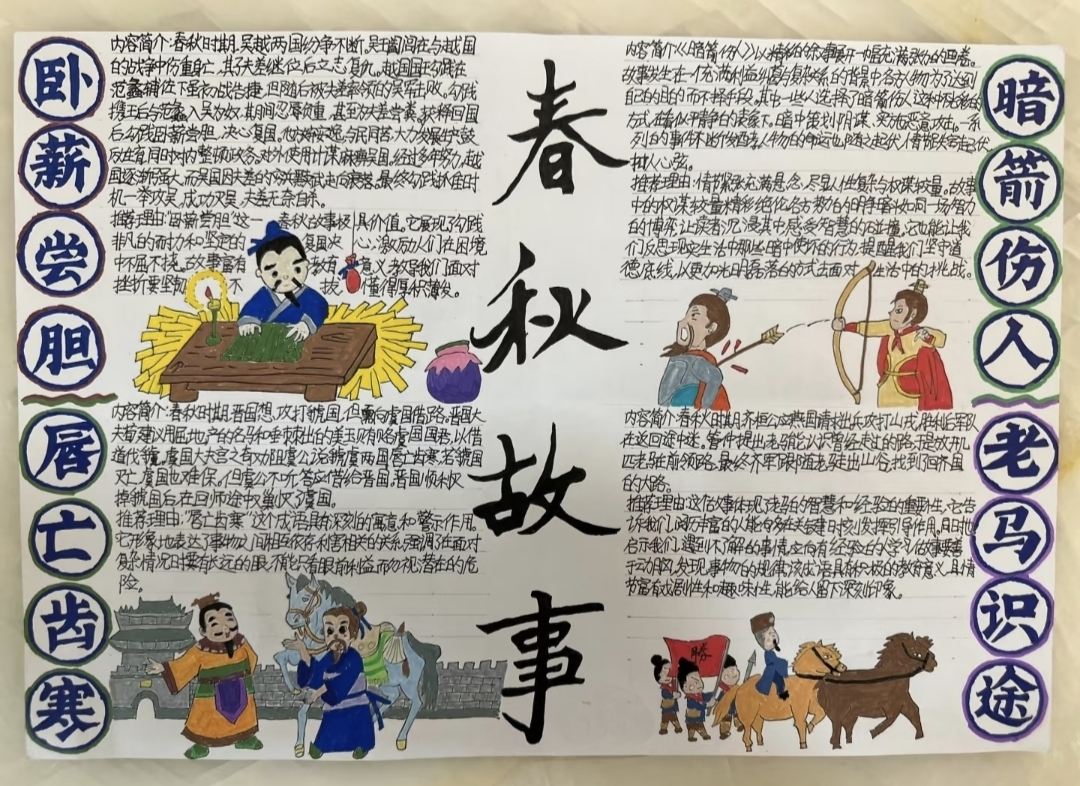 春秋故事
卧薪尝胆
内容简介:春秋时期,吴越两国纷争不断。吴王阖闾在与越国
的战争中伤重身亡,其子夫差继位后立志复仇。越国国王勾践在
范蠡辅佐下
携王后与范蠡入吴为奴,期间忍辱负重,甚至为夫差尝粪,获释回国
后,勾践卧薪尝胆,决心复国。他
越
国逐渐强大,而吴国因夫差的穷兵黩武走向衰落。最终勾践抓准时
机一举攻吴,成功灭吴,夫差无奈自杀。
推荐理由:"卧薪尝胆"这一春秋故事极具价值。它展现勾践
非凡的耐力和坚定的复国决心,激励人们在困境
中不屈不挠。故事富有教育意义,教导我们面对
挫折要坚韧不拔,懂得厚积薄发。
唇亡齿寒
内容简介:春秋时期,晋国想攻打虢国,但需向虞国借路。晋国大
夫荀建议用屈地产的名马和垂棘出的美玉贿赂虞国国君,以借
道伐虢。虞国大夫宫之奇劝阻虞公,说虢虞两国唇亡齿寒,若虢国
灭亡,虞国也难保。但虞公不听,答应借给晋国。晋国顺利灭
掉虢国后,在回师途中
推荐理由:"唇亡齿寒"这个成语具有深刻的寓意和警示作用。
它形象地表达了事物之间相互依存、利害相关的关系,强调了在面对
复杂情况时要有长远的眼
不能只看眼前利益,而忽视潜在的危
险。
暗箭伤人
内容简介:《暗箭伤人》以精彩的叙事展开一幅充满张力的画卷。
故事发生在一个充满利益纠葛与复杂关系的背景中,各方人物为了达到
自己的目的而不择手段。其中一些人选择了暗箭伤人这种
方式,在看似平静的表象下,暗中策划阴谋,实施恶意攻击。一系
列的事件不断
人物的命运也随之起伏,情节跌宕起伏
扣人心弦。
推荐理由:情节紧张充满悬念,尽显人性复杂与权谋较量。故事
中的权谋较量精彩绝伦,各方势力的明争暗斗如同一场智力
的博弈,让读者沉浸其中感受智慧的碰撞。它也能让我
们反思现实生活中那些暗中使坏的行为,提醒我们坚守道
德底线,以更加光明磊落的方式去面对生活中的挑战。
老马识途
内容简介:春秋时期,齐桓公应燕国请求出兵攻打山戎,胜利后军队
在返回途中迷
管仲提出老马能认识曾经走过的路,于是放开几
匹老马在前领路,最终齐军跟随老马走出山谷,找到了回齐国
的大路。
推荐理由:这个故事体现了老马的智慧和经验的重要性,它告
诉我们,阅历丰富的人能够在关键时刻发挥引导作用,同时也
启示我们,遇到不了解的事情,应向有经验的人学习,做事要善
于动脑,发现事物的规律。该成语具有积极的教育意义,且情
节富有戏剧性和趣味性,能给人留下深刻印象。
勝